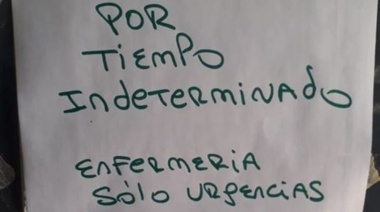 POR
TIEMPO
INDETERMINADO
ENFERMERIA
SÓLO URGENCIAS